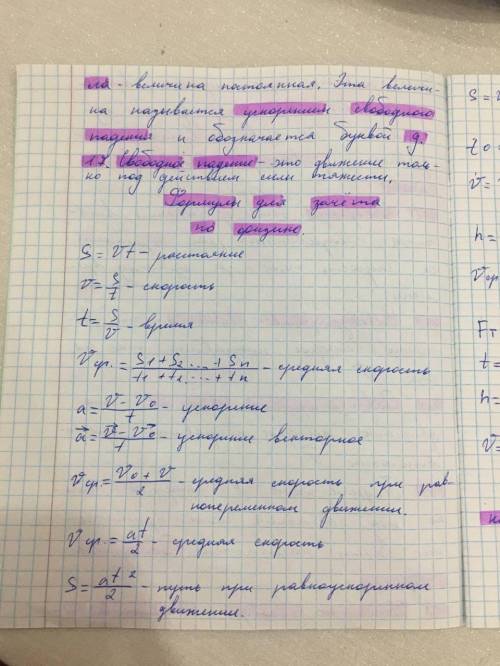 ла - величина постоянная. Эта величи-
на называется ускорением свободного
падения и обозначается буквой g.
17. Свободное падение - это движение толь-
ко под действием силы тяжести.
Формулы для зачёта
по физике.
S = Vt - расстояние
V = S/t - скорость
t = S/V - время
Vср. = S1 + S2 ... + Sn / t1 + t2 ... + tn - средняя скорость
a = V - V0 / t - ускорение
a⃗ = V⃗ - V⃗0 / t - ускорение векторное
Vср. = V0 + V / 2 - средняя скорость при рав-
нопеременном движении.
Vср. = at/2 - средняя скорость
S = at²/2 - путь при равноускоренном
движении.
S =
t0
V =
h =
Vср
Fт
t =
h =
V =